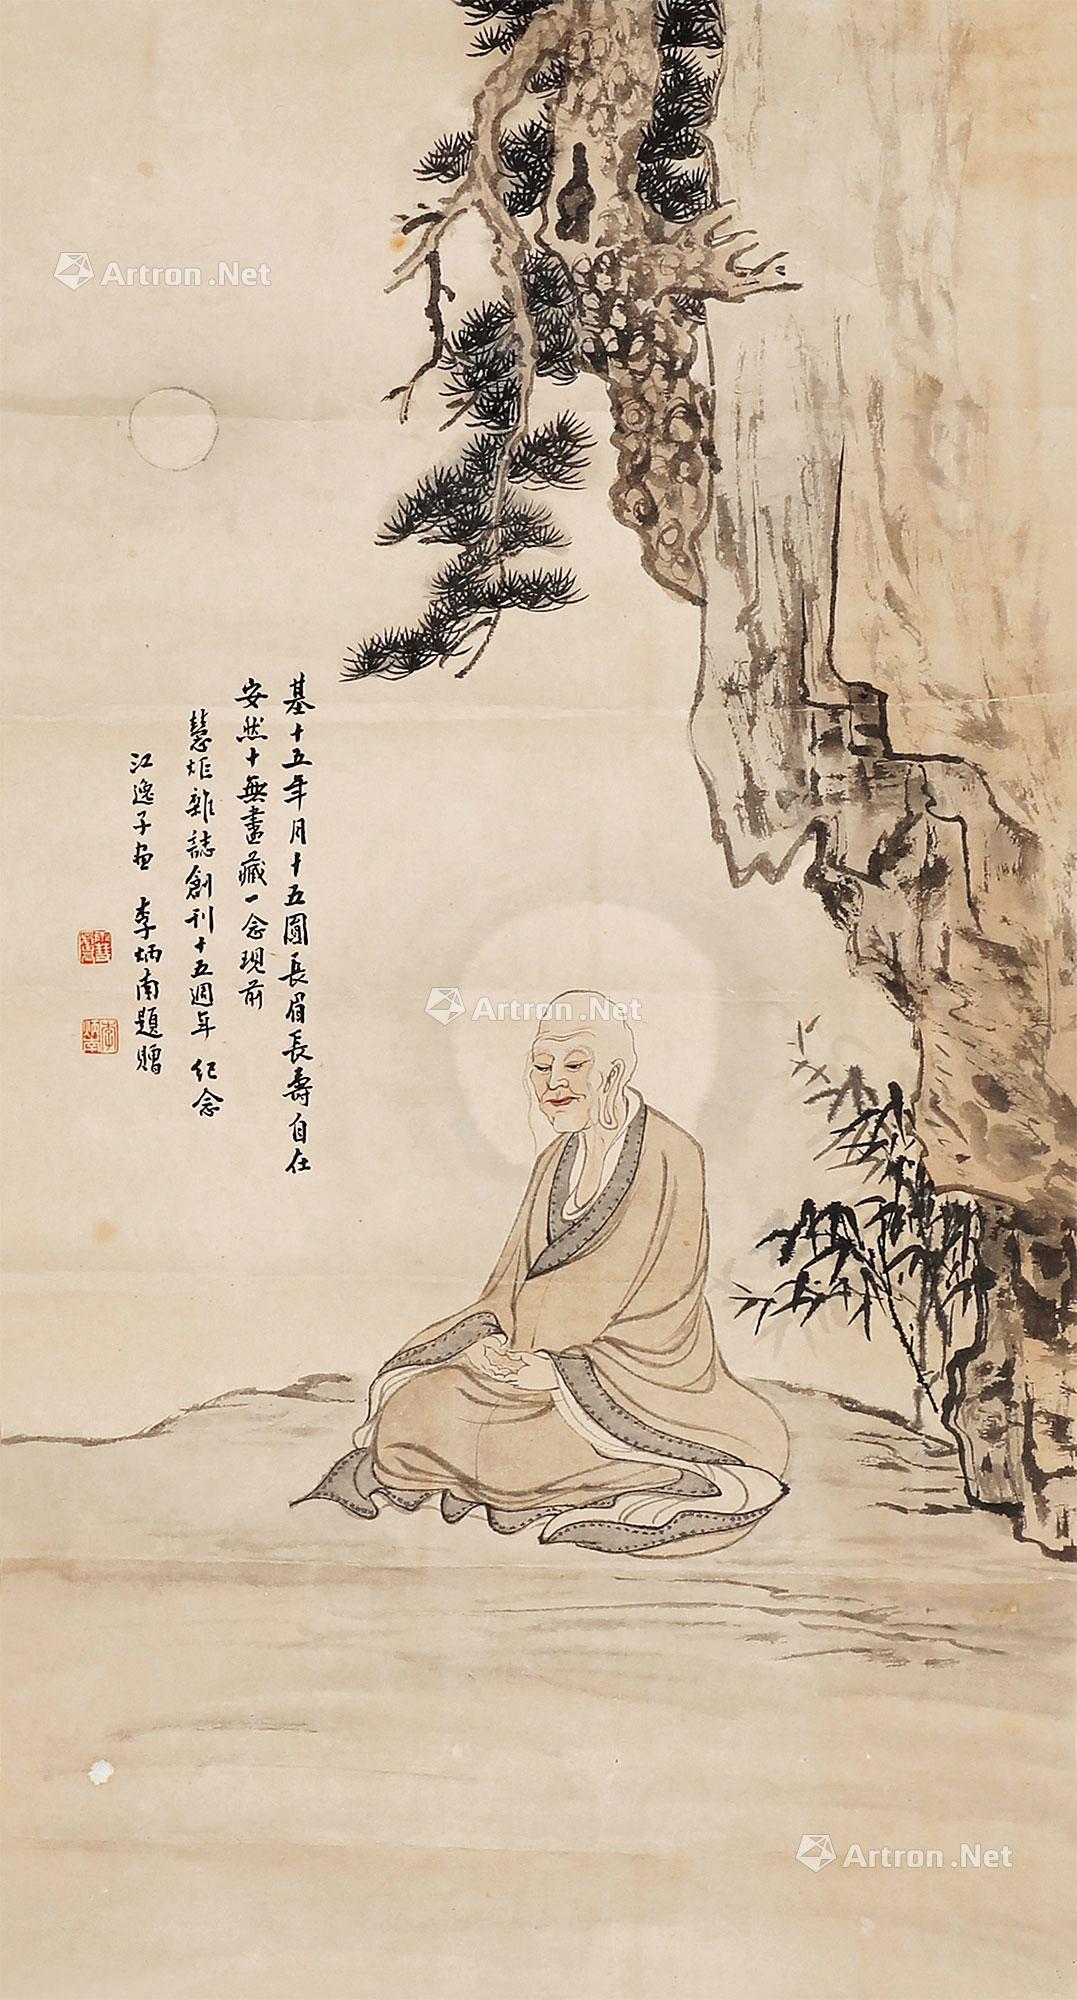 基十五年月十五圓長眉長壽自在
安然十無盡藏一念現前
慧炬雜誌創刊十五週年 紀念
江逸子畫 李炳南題贈
Artron.Net
Artron.Net
Artron.Net